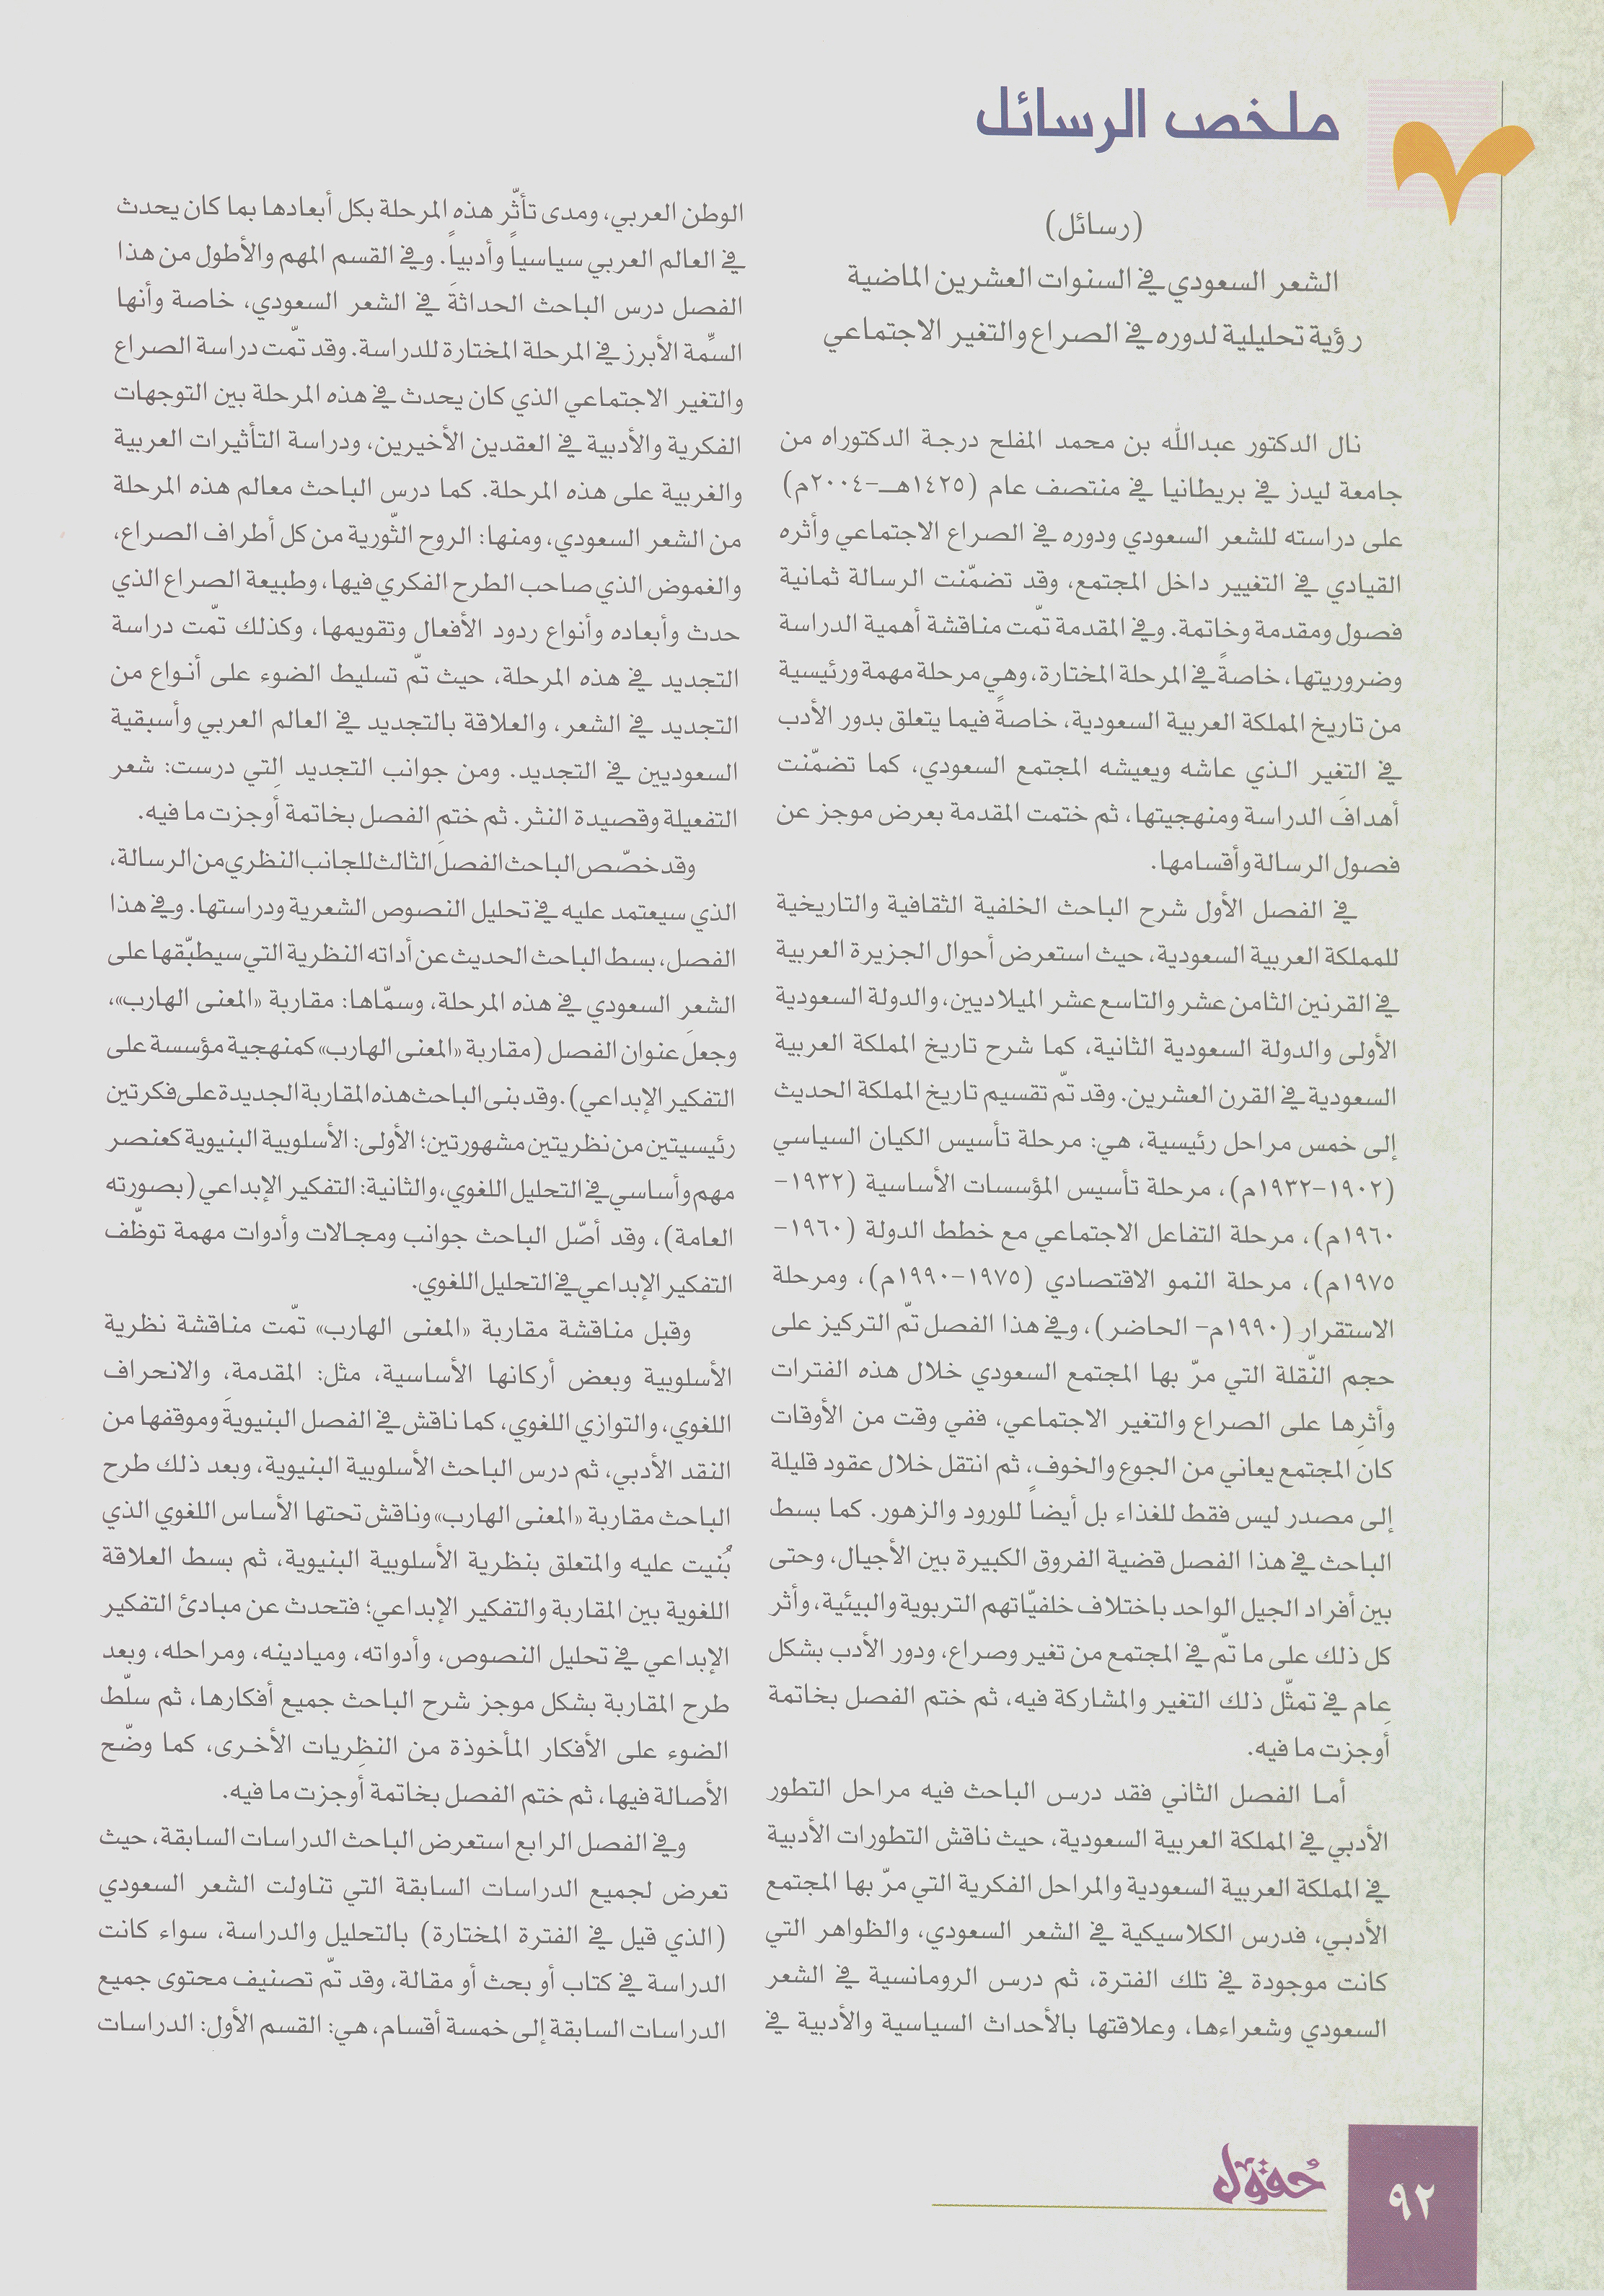 ملخص الرسائل
(رسائل)
الشعر السعودي في السنوات العشرين الماضية
رؤية تحليلية لدوره في الصراع والتغير الاجتماعي
نال الدكتور عبدالله بن محمد المفلح درجة الدكتوراه من
جامعة ليدز في بريطانيا في منتصف عام (١٤٢٥هـ-٢٠٠٤م)
على دراسته للشعر السعودي ودوره في الصراع الاجتماعي وأثره
القيادي في التغيير داخل المجتمع، وقد تضمّنت الرسالة ثمانية
فصول ومقدمة وخاتمة. وفي المقدمة تمّت مناقشة أهمية الدراسة
وضروريتها، خاصةً في المرحلة المختارة، وهي مرحلة مهمة ورئيسية
من تاريخ المملكة العربية السعودية، خاصةً فيما يتعلق بدور الأدب
في التغير الذي عاشه ويعيشه المجتمع السعودي، كما تضمّنت
أهدافَ الدراسة ومنهجيتها، ثم ختمت المقدمة بعرض موجز عن
فصول الرسالة وأقسامها.
في الفصل الأول شرح الباحث الخلفية الثقافية والتاريخية
للمملكة العربية السعودية، حيث استعرض أحوال الجزيرة العربية
في القرنين الثامن عشر والتاسع عشر الميلاديين، والدولة السعودية
الأولى والدولة السعودية الثانية، كما شرح تاريخ المملكة العربية
السعودية في القرن العشرين. وقد تمّ تقسيم تاريخ المملكة الحديث
إلى خمس مراحل رئيسية، هي: مرحلة تأسيس الكيان السياسي
(١٩٠٢-١٩٣٢م)، مرحلة تأسيس المؤسسات الأساسية (١٩٣٢-
١٩٦٠م)، مرحلة التفاعل الاجتماعي مع خطط الدولة (١٩٦٠-
١٩٧٥م)، مرحلة النمو الاقتصادي (١٩٧٥-١٩٩٠م)، ومرحلة
الاستقرار (١٩٩٠م- الحاضر)، وفي هذا الفصل تمّ التركيز على
حجم النّقلة التي مرّ بها المجتمع السعودي خلال هذه الفترات
وأثرِها على الصراع والتغير الاجتماعي، ففي وقت من الأوقات
كان المجتمع يعاني من الجوع والخوف، ثم انتقل خلال عقود قليلة
إلى مصدر ليس فقط للغذاء بل أيضاً للورود والزهور. كما بسط
الباحث في هذا الفصل قضية الفروق الكبيرة بين الأجيال، وحتى
بين أفراد الجيل الواحد باختلاف خلفيّاتهم التربوية والبيئية، وأثر
كل ذلك على ما تمّ في المجتمع من تغير وصراع، ودور الأدب بشكل
عام في تمثّل ذلك التغير والمشاركة فيه، ثم ختم الفصل بخاتمة
أوجزت ما فيه.
أما الفصل الثاني فقد درس الباحث فيه مراحل التطور
الأدبي في المملكة العربية السعودية، حيث ناقش التطورات الأدبية
في المملكة العربية السعودية والمراحل الفكرية التي مرّ بها المجتمع
الأدبي، فدرس الكلاسيكية في الشعر السعودي، والظواهر التي
كانت موجودة في تلك الفترة، ثم درس الرومانسية في الشعر
السعودي وشعراءها، وعلاقتها بالأحداث السياسية والأدبية في
الوطن العربي، ومدى تأثّر هذه المرحلة بكل أبعادها بما كان يحدث
في العالم العربي سياسياً وأدبياً. وفي القسم المهم والأطول من هذا
الفصل درس الباحث الحداثةَ في الشعر السعودي، خاصة وأنها
السِّمة الأبرز في المرحلة المختارة للدراسة. وقد تمّت دراسة الصراع
والتغير الاجتماعي الذي كان يحدث في هذه المرحلة بين التوجهات
الفكرية والأدبية في العقدين الأخيرين، ودراسة التأثيرات العربية
والغربية على هذه المرحلة. كما درس الباحث معالم هذه المرحلة
من الشعر السعودي، ومنها: الروح الثّورية من كل أطراف الصراع،
والغموض الذي صاحب الطرح الفكري فيها، وطبيعة الصراع الذي
حدث وأبعاده وأنواع ردود الأفعال وتقويمها، وكذلك تمّت دراسة
التجديد في هذه المرحلة، حيث تمّ تسليط الضوء على أنواع من
التجديد في الشعر، والعلاقة بالتجديد في العالم العربي وأسبقية
السعوديين في التجديد. ومن جوانب التجديد التي درست: شعر
التفعيلة وقصيدة النثر. ثم ختم الفصل بخاتمة أوجزت ما فيه.
وقد خصّص الباحث الفصلَ الثالث للجانب النظري من الرسالة،
الذي سيعتمد عليه في تحليل النصوص الشعرية ودراستها. وفي هذا
الفصل، بسط الباحث الحديث عن أداته النظرية التي سيطبّقها على
الشعر السعودي في هذه المرحلة، وسمّاها: مقاربة «المعنى الهارب»،
وجعلَ عنوان الفصل (مقاربة «المعنى الهارب» كمنهجية مؤسسة على
التفكير الإبداعي). وقد بنى الباحث هذه المقاربة الجديدة على فكرتين
رئيسيتين من نظريتين مشهورتين؛ الأولى: الأسلوبية البنيوية كعنصر
مهم وأساسي في التحليل اللغوي، والثانية: التفكير الإبداعي (بصورته
العامة)، وقد أصّل الباحث جوانب ومجالات وأدوات مهمة توظّف
التفكير الإبداعي في التحليل اللغوي.
وقبل مناقشة مقاربة «المعنى الهارب» تمّت مناقشة نظرية
الأسلوبية وبعض أركانها الأساسية، مثل: المقدمة، والانحراف
اللغوي، والتوازي اللغوي، كما ناقش في الفصل البنيويةَ وموقفها من
النقد الأدبي، ثم درس الباحث الأسلوبية البنيوية، وبعد ذلك طرح
الباحث مقاربة «المعنى الهارب» وناقش تحتها الأساس اللغوي الذي
بُنيت عليه والمتعلق بنظرية الأسلوبية البنيوية، ثم بسط العلاقة
اللغوية بين المقاربة والتفكير الإبداعي؛ فتحدث عن مبادئ التفكير
الإبداعي في تحليل النصوص، وأدواته، وميادينه، ومراحله، وبعد
طرح المقاربة بشكل موجز شرح الباحث جميع أفكارها، ثم سلّط
الضوء على الأفكار المأخوذة من النظريات الأخرى، كما وضّح
الأصالة فيها، ثم ختم الفصل بخاتمة أوجزت ما فيه.
وفي الفصل الرابع استعرض الباحث الدراسات السابقة، حيث
تعرض لجميع الدراسات السابقة التي تناولت الشعر السعودي
(الذي قيل في الفترة المختارة) بالتحليل والدراسة، سواء كانت
الدراسة في كتاب أو بحث أو مقالة، وقد تمّ تصنيف محتوى جميع
الدراسات السابقة إلى خمسة أقسام، هي: القسم الأول: الدراسات
حُقول
٩٢